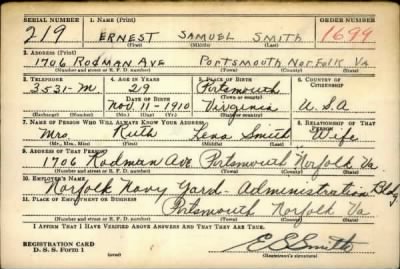 SERIAL NUMBER 1. NAME (Print) ORDER NUMBER
219 ERNEST SAMUEL SMITH 1699
(First) (Middle) (Last)
2. ADDRESS (Print)
1706 RODMAN AVE PORTSMOUTH NORFOLK VA
(Number and street or R. F. D. number) (Town) (County) (State)
3. TELEPHONE 4. AGE IN YEARS 5. PLACE OF BIRTH 6. COUNTRY OF CITIZENSHIP
3531-M 29 Portsmouth
DATE OF BIRTH (Town or county)
Nov. 11-1910 Virginia U.S.A
(Exchange) (Number) (Mo.) (Day) (Yr.) (State or country)
7. NAME OF PERSON WHO WILL ALWAYS KNOW YOUR ADDRESS 8. RELATIONSHIP OF THAT PERSON
Mrs. Ruth Lena Smith Wife
(Mr., Mrs., Miss) (First) (Middle) (Last)
9. ADDRESS OF THAT PERSON
1706 Rodman Ave Portsmouth Norfolk Va
(Number and street or R. F. D. number) (Town) (County) (State)
10. EMPLOYER'S NAME
Norfolk Navy Yard - Administration Bldg
11. PLACE OF EMPLOYMENT OR BUSINESS
Portsmouth Norfolk Va
(Number and street or R. F. D. number) (Town) (County) (State)
I AFFIRM THAT I HAVE VERIFIED ABOVE ANSWERS AND THAT THEY ARE TRUE.
REGISTRATION CARD
D. S. S. Form 1 E S Smith
(Registrant's signature)